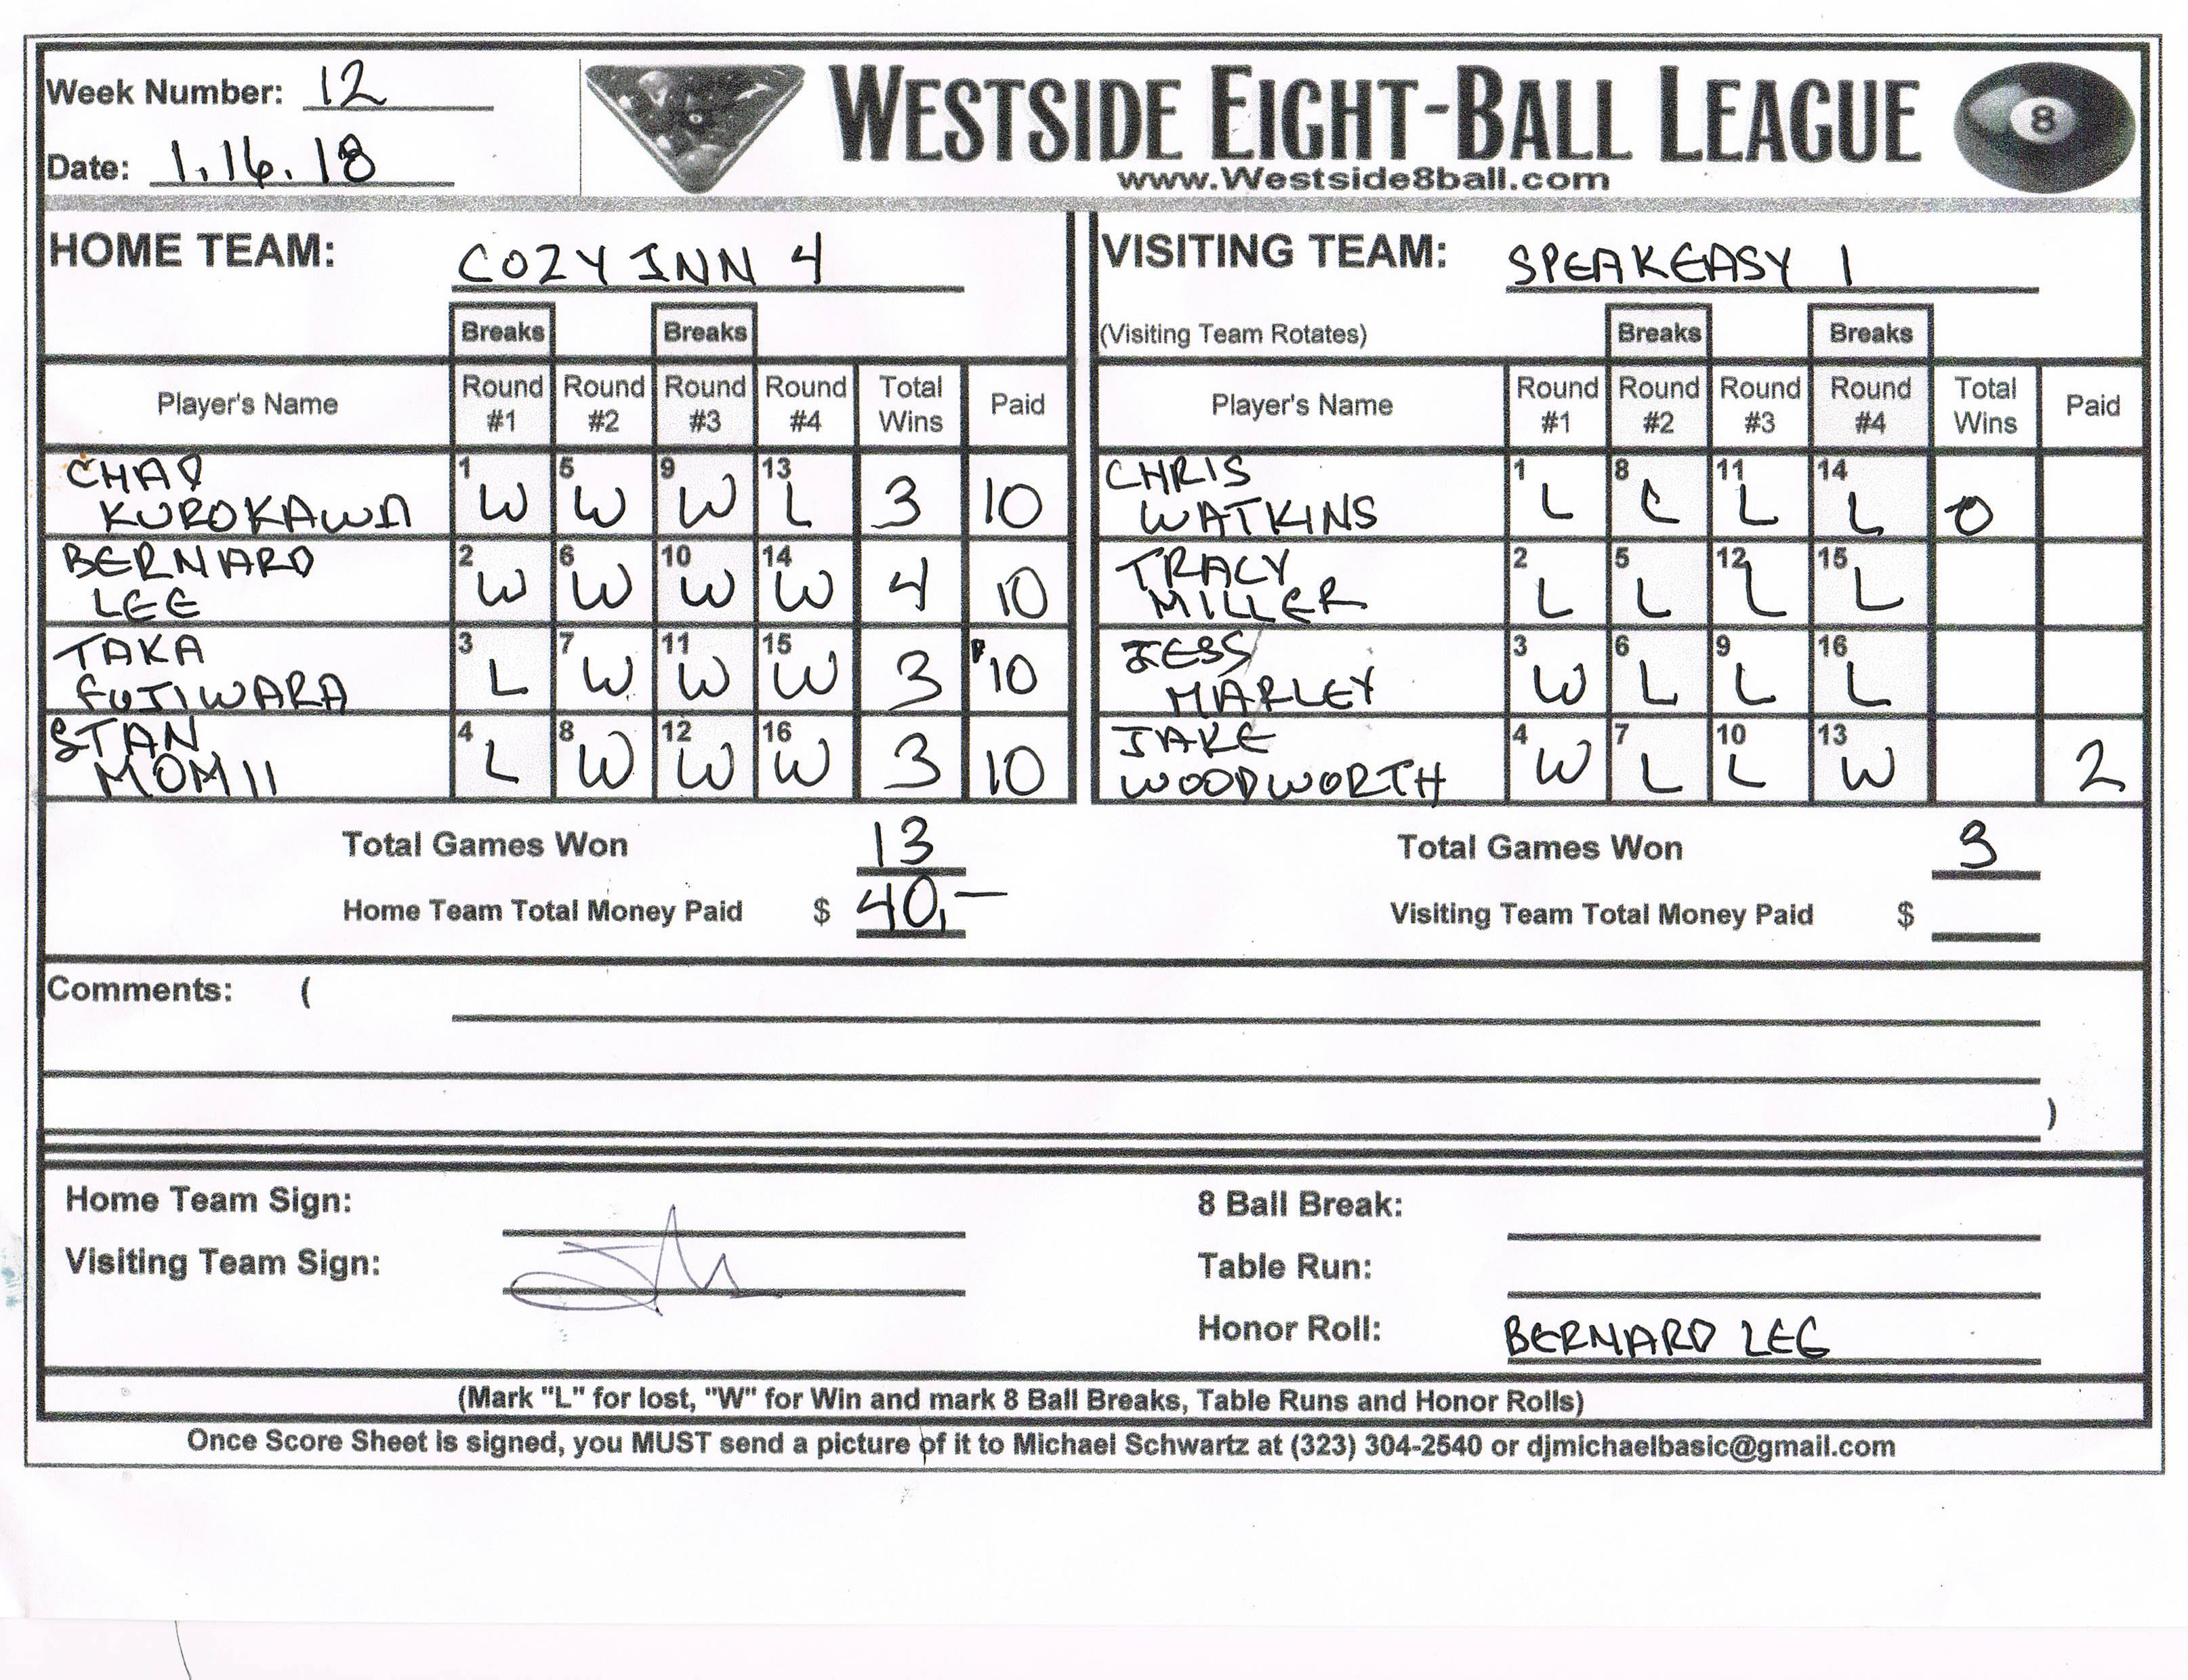 Week Number: 12
Date: 1.16.18
WESTSIDE EIGHT-BALL LEAGUE
8
www.Westside8ball.com
HOME TEAM: COZY INN 4
VISITING TEAM: SPEAKEASY 1
Breaks Breaks
(Visiting Team Rotates) Breaks Breaks
Player's Name Round #1 Round #2 Round #3 Round #4 Total Wins Paid
Player's Name Round #1 Round #2 Round #3 Round #4 Total Wins Paid
CHAD KUROKAWA 1 W 5 W 9 W 13 L 3 10
CHRIS WATKINS 1 L 8 L 11 L 14 L 0
BERNARD LEE 2 W 6 W 10 W 14 W 4 10
TRACY MILLER 2 L 5 L 12 L 15 L
TAKA FUJIWARA 3 L 7 W 11 W 15 W 3 10
JESS MARLEY 3 W 6 L 9 L 16 L
STAN MOMII 4 L 8 W 12 W 16 W 3 10
JAKE WOODWORTH 4 W 7 L 10 L 13 W 2
Total Games Won 13
Total Games Won 3
Home Team Total Money Paid $ 40,—
Visiting Team Total Money Paid $
Comments: (
)
Home Team Sign:
8 Ball Break:
Visiting Team Sign:
Table Run:
Honor Roll: BERNARD LEE
(Mark "L" for lost, "W" for Win and mark 8 Ball Breaks, Table Runs and Honor Rolls)
Once Score Sheet is signed, you MUST send a picture of it to Michael Schwartz at (323) 304-2540 or djmichaelbasic@gmail.com